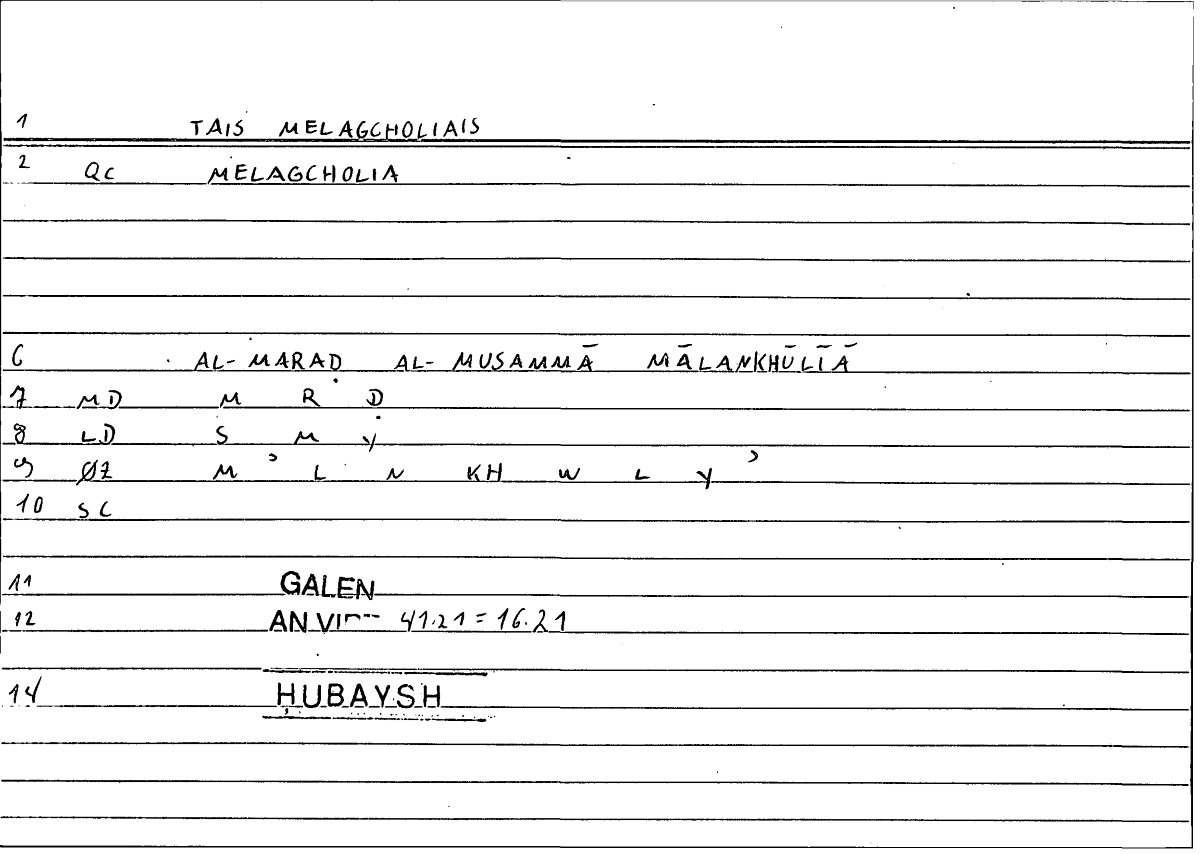 1 TAIS MELAGCHOLIAIS
2 QC MELAGCHOLIA
6 AL-MARAD AL-MUSAMMĀ MĀLANKHŪLĪĀ
7 MD M R Ḋ
8 LD S M Y
9 ØZ M ʾ L N KH W L Y ʾ
10 SC
11 GALEN
12 AN VI 41.21 = 16.21
14 ḤUBAYSH